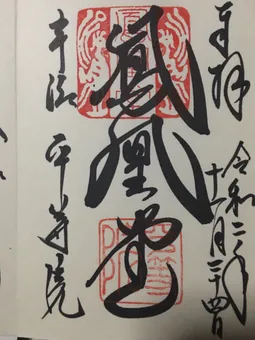 奉拝
令和二年
十一月二十四日
鳳凰堂
宇治 平等院